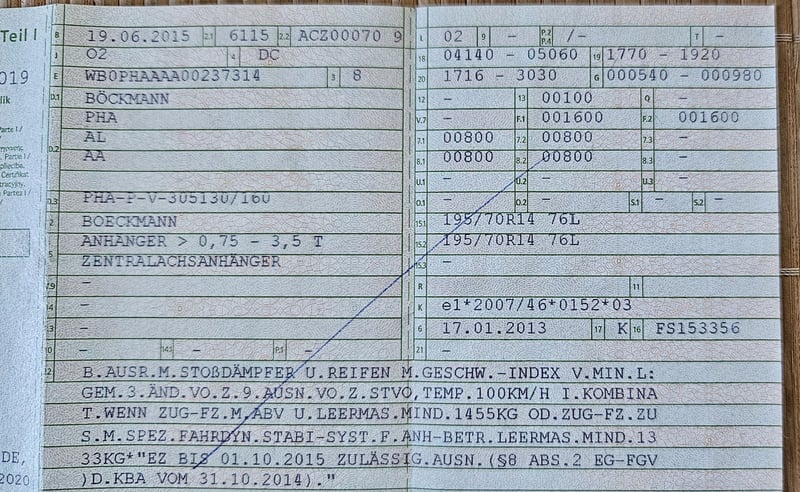 Teil I
B 19.06.2015 2.1 6115 2.2 ACZ00070 9
L 02 9 - P.2 P.4 /- T -
J O2 4 DC
18 04140 - 05060 19 1770 - 1920
019
E WB0PHAAAA00237314 3 8
20 1716 - 3030 G 000540 - 000980
D.1 BÖCKMANN
12 - 13 00100 Q -
PHA
V.7 - F.1 001600 F.2 001600
D.2 AL
7.1 00800 7.2 00800 7.3 -
AA
8.1 00800 8.2 00800 8.3 -
U.1 - U.2 - U.3 -
D.3 PHA-P-V-305130/160
O.1 - O.2 - S.1 - S.2 -
2 BOECKMANN
15.1 195/70R14 76L
ANHÄNGER > 0,75 - 3,5 T
15.2 195/70R14 76L
5 ZENTRALACHSANHÄNGER
15.3 -
V.9 -
R - 11 -
14 -
K e1*2007/46*0152*03
P.3 -
6 17.01.2013 17 K 16 FS153356
10 - 14.1 - P.5 -
21 -
22 B.AUSR.M.STOßDÄMPFER U.REIFEN M.GESCHW.-INDEX V.MIN.L:
GEM.3.ÄND.VO.Z.9.AUSN.VO.Z.STVO,TEMP.100KM/H I.KOMBINA
T.WENN ZUG-FZ.M.ABV U.LEERMAS.MIND.1455KG OD.ZUG-FZ.ZU
S.M.SPEZ.FAHRDYN.STABI-SYST.F.ANH-BETR.LEERMAS.MIND.13
33KG*"EZ BIS 01.10.2015 ZULÄSSIG.AUSN.(§8 ABS.2 EG-FGV
)D.KBA VOM 31.10.2014)."
DE,
2020